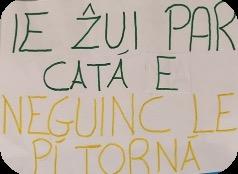 IE ẐUI PAR
CATÁ E
NEGUINC LE
PÌ TORNÀ